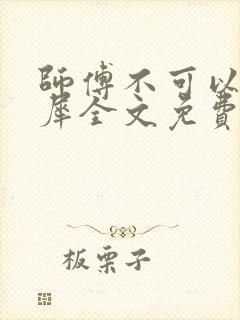 師傅不可以
犀全文免費
板栗子